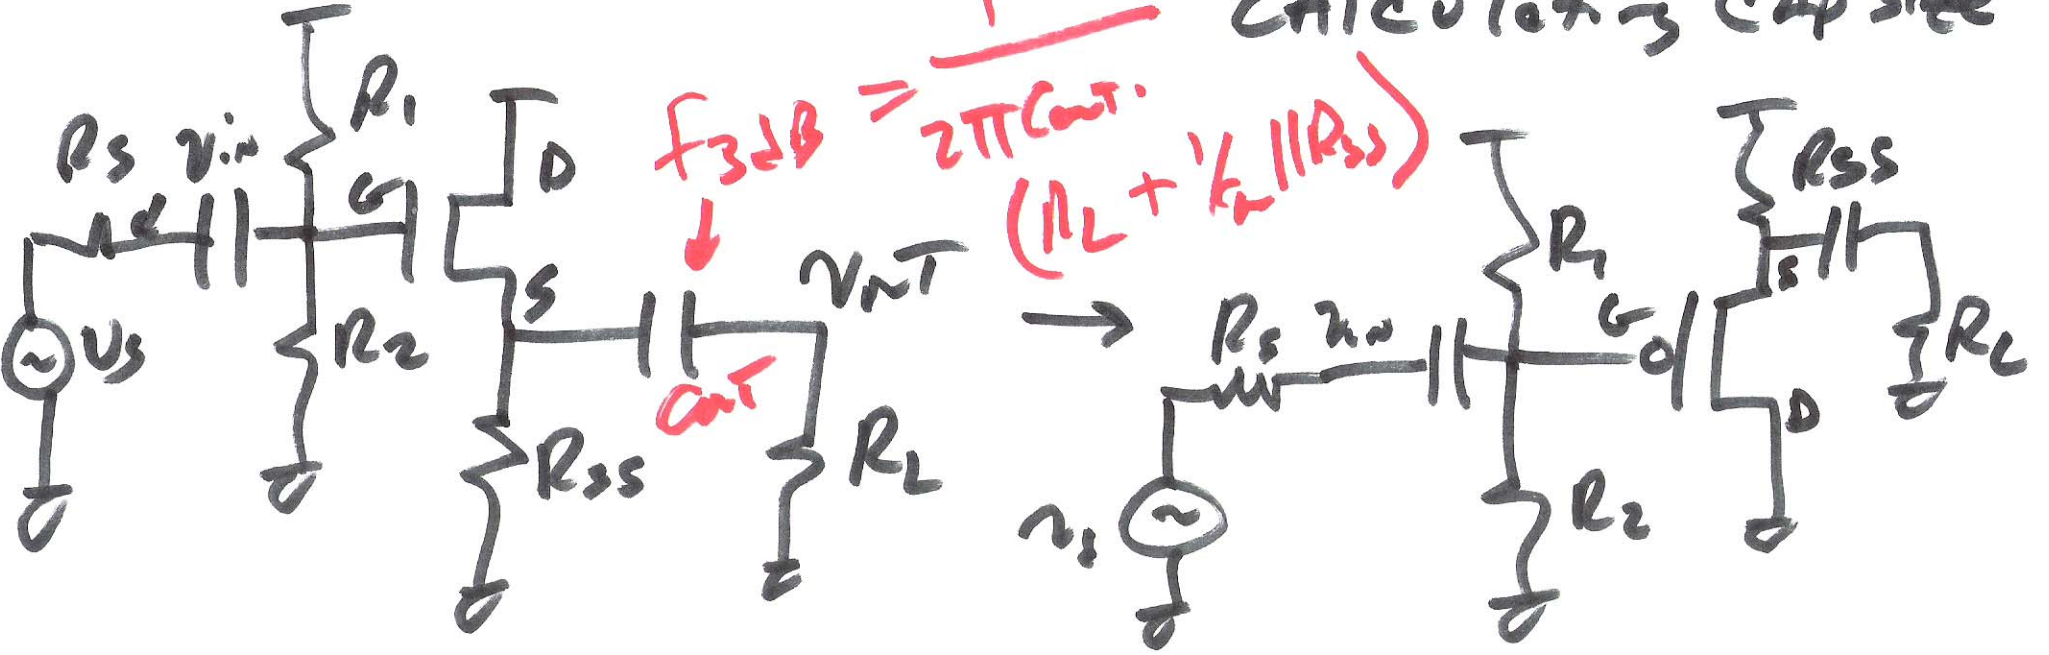 CALCULATING CAP SIZE
f3dB = 1
2π Cout ·
(RL + 1/gm || RSS)
R1
Rs vin
G
D
S
vs
R2
Cout
vout
RSS
RL
→
RSS
R1
S
Rs vin
G
RL
D
vs
R2